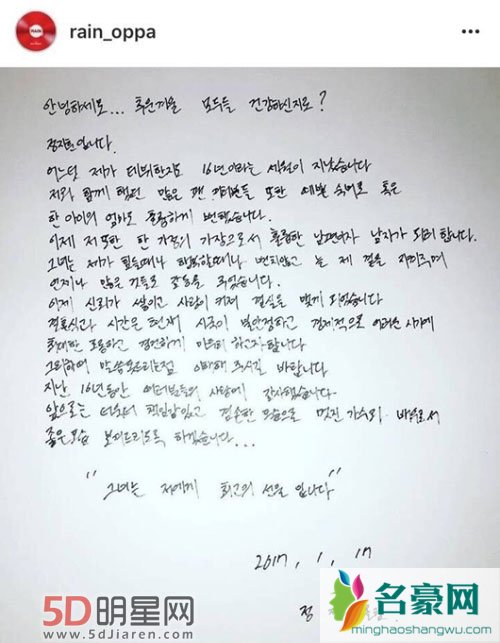 rain_oppa
RAIN
안녕하세요... 추운겨울 모두들 건강하신지요?
정지훈입니다.
어느덧 제가 데뷔한지 16년이라는 세월이 지났습니다
저와 함께 했던 많은 팬 여러분들 또한 예쁜 숙녀로 혹은
한 아이의 엄마로 훌륭하게 변했습니다.
이제 저 또한 한 가정의 가장으로서 훌륭한 남편이자 남자가 되려 합니다.
그녀는 제가 힘들때나 행복할때나 변치않고 늘 제 곁을 지켜주며
언제나 많은 것들로 감동을 주었습니다.
이제 신뢰가 쌓이고 사랑이 커져 결실을 맺게 되었습니다
결혼식과 시간은 현재 시국이 불안정하고 경제적으로 어려운 시기에
최대한 조용하고 경건하게 마무리 하고자 합니다
그리하여 말씀못드리는점 이해해 주시길 바랍니다
지난 16년동안 여러분들의 사랑에 감사했습니다.
앞으로는 더욱더 책임감있고 겸손한 모습으로 멋진 가수와 배우로서
좋은모습 보여드리도록 하겠습니다...
"그녀는 저에게 최고의 선물 입니다"
2017, 1, 17
정
5D明星网
www.5djiaren.com
名豪网
minghaoshangwu.com